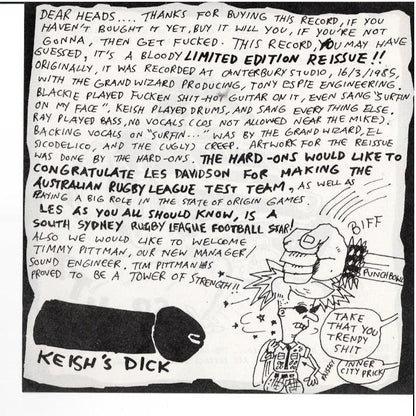 DEAR HEADS.... THANKS FOR BUYING THIS RECORD, IF YOU
HAVEN'T BOUGHT IT YET, BUY IT WILL YOU, IF YOU'RE NOT
GONNA, THEN GET FUCKED. THIS RECORD, YOU MAY HAVE
GUESSED, IT'S A BLOODY LIMITED EDITION REISSUE!!
ORIGINALLY, IT WAS RECORDED AT CANTERBURY STUDIO, 16/3/1985,
WITH THE GRAND WIZARD PRODUCING, TONY ESPIE ENGINEERING.
BLACKIE PLAYED FUCKEN SHIT-HOT GUITAR ON IT, EVEN SANG "SURFIN
ON MY FACE", KEISH PLAYED DRUMS, AND SANG EVERYTHING ELSE,
RAY PLAYED BASS, NO VOCALS (COS NOT ALLOWED NEAR THE MIKE).
BACKING VOCALS ON "SURFIN..." WAS BY THE GRAND WIZARD, EL
SICODELICO, AND THE (UGLY) CREEP. ARTWORK FOR THE REISSUE
WAS DONE BY THE HARD-ONS. THE HARD-ONS WOULD LIKE TO
CONGRATULATE LES DAVIDSON FOR MAKING THE
AUSTRALIAN RUGBY LEAGUE TEST TEAM, AS WELL AS
PLAYING A BIG ROLE IN THE STATE OF ORIGIN GAMES.
LES AS YOU ALL SHOULD KNOW, IS A
SOUTH SYDNEY RUGBY LEAGUE FOOTBALL STAR!
ALSO WE WOULD LIKE TO WELCOME
TIMMY PITTMAN, OUR NEW MANAGER/
SOUND ENGINEER. TIM PITTMAN HAS
PROVED TO BE A TOWER OF STRENGTH!!
BIFF
PUNCHBOWL
TAKE
THAT YOU
TRENDY
SHIT
INNER
CITY PRICK
KEISH'S DICK